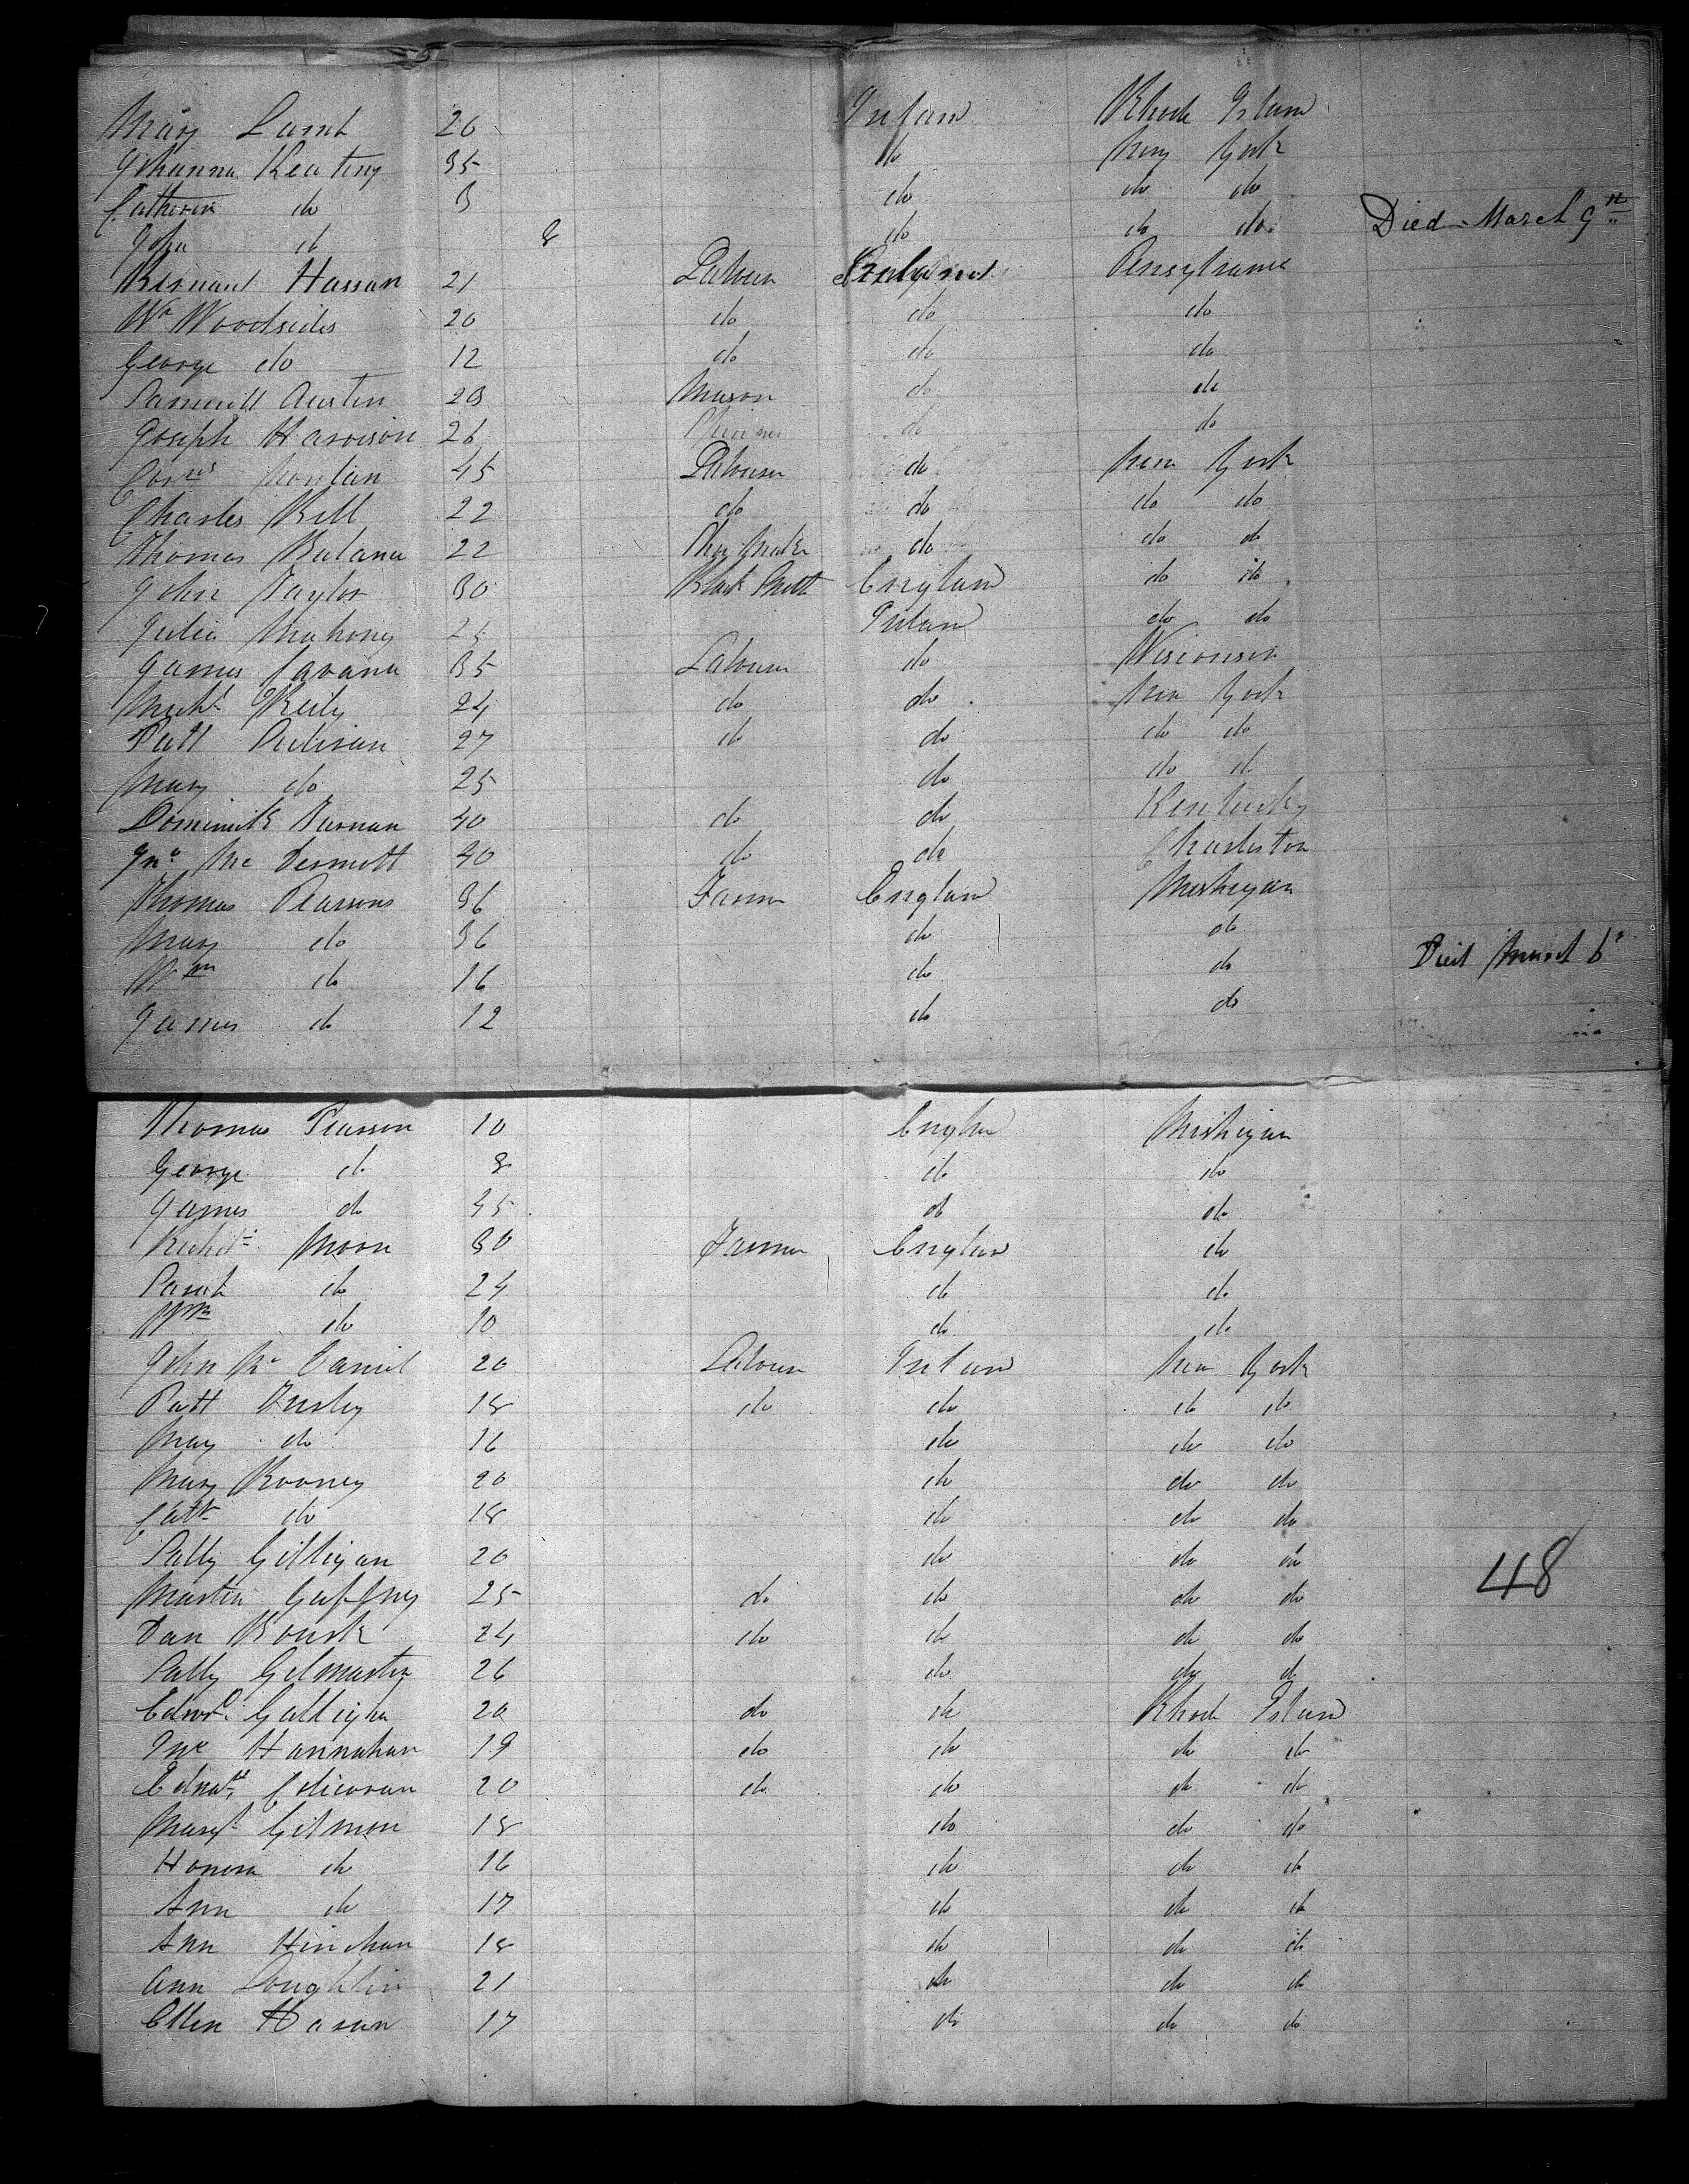 Mary Lamb 26 Irelan Rhode Islan
Johanna Keating 35 do New York
Catherine do 3 do do do
John do 8 do do do Died March 9th
Bernard Hassan 21 Labour Ireland Pensylvania
Wm Woodsides 20 do do do
George do 12 do do do
Samuell Austin 23 Mason do do
Joseph Harrison 26 Miner do do
45 Labourer do New York
Charles Bell 22 do do do do
Thomas 22 Shoe Maker do do do
John Taylor 30 Black Smith Englan do do
Julia Mahony 25 Irelan do do
James Cavana 35 Labourer do Wisconsin
Michl Reily 24 do do New York
Patt Sulivan 27 do do do do
Mary do 25 do do do
Dominick 40 do do Kentucky
Jno Mc Dermott 40 do do Charleston
Thomas Pearsons 36 Farmer Englan Mishigan
Mary do 36 do do
Wm do 16 do do Died March 6
James do 12 do do
Thomas Pearson 10 Englan Mishigan
George do 8 do do
James do 45 do do
Richd Moon 30 Farmer Englan do
Sarah do 24 do do
Wm do 10 do do
John Mc Daniel 20 Labour Irelan New York
Patt 18 do do do do
Mary do 16 do do do
Mary Rooney 20 do do do
Cath do 18 do do do
Sally Gilligan 20 do do do
48
Martin Gaffney 25 do do do do
Dan Bourk 24 do do do do
Sally Gilmartin 26 do do do
Edwd 20 do do Rhode Islan
Jno Hannahan 19 do do do do
Edwd 20 do do do do
Margt Gilmon 18 do do do
Honora do 16 do do do
Ann do 17 do do do
Ann 18 do do do
Ann Loughlin 21 do do do
Ellen Hasan 17 do do do